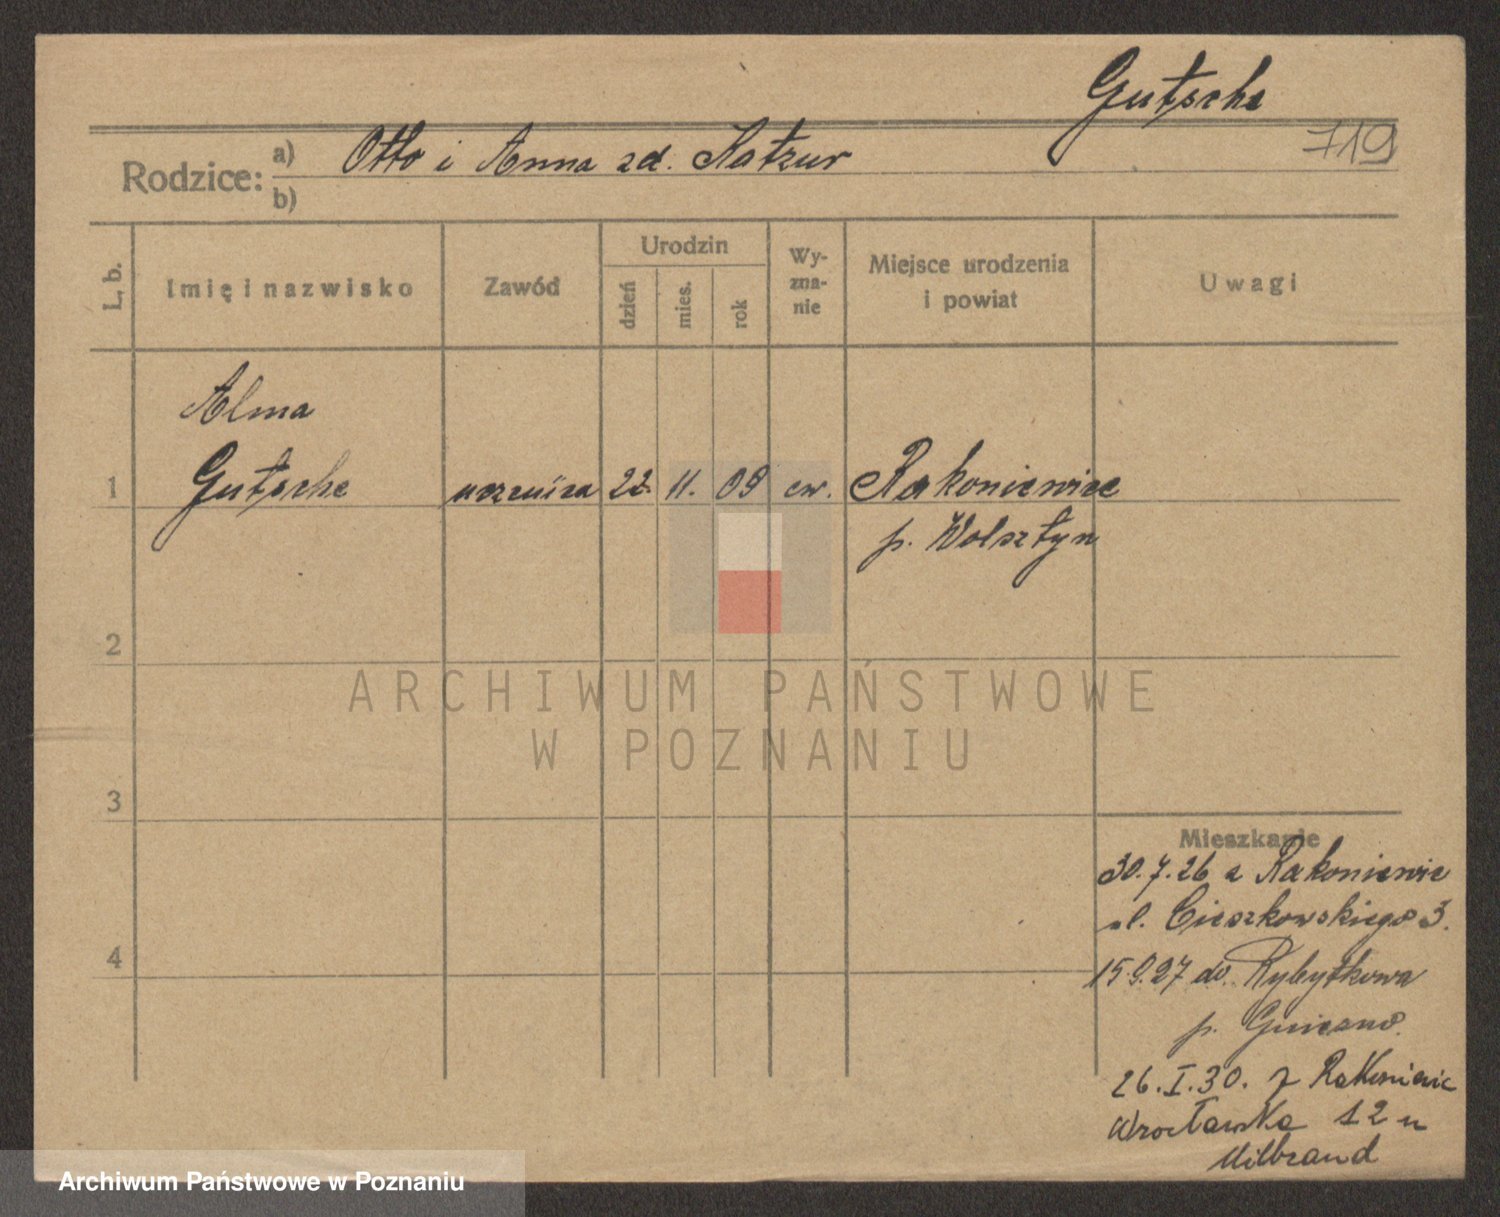 Gutsche
719
Rodzice: a) Otto i Anna zd. Katzur
b)
L. b.
Imię i nazwisko
Zawód
Urodzin
dzień
mies.
rok
Wy-
zna-
nie
Miejsce urodzenia
i powiat
Uwagi
Alma
1 Gutsche uczenica 22. 11. 09 ew. Rakoniewice
p. Wolsztyn
2
ARCHIWUM PAŃSTWOWE
W POZNANIU
3
Mieszkanie
30.7.26 z Rakoniewic
ul. Cieszkowskiego 3.
4
15.9.27 do Rybytkowa
p. Gniezno.
26.I.30. z Rakoniewic
Wrocławska 12 u
Milbrand
Archiwum Państwowe w Poznaniu